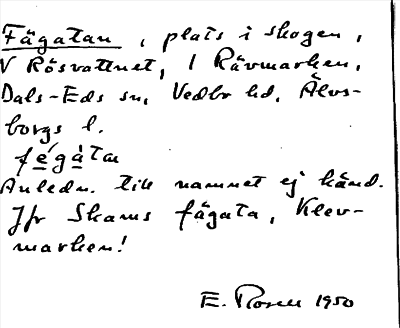 Fägatan, plats i skogen,
V Rösvattnet, i Rävmarken,
Dals-Eds sn, Vedbo hd, Älvs-
borgs l.
fé̱gà̱tan
Anledn. till namnet ej känd.
Jfr Skams fägata, Klev-
marken!
E. Rosell 1950